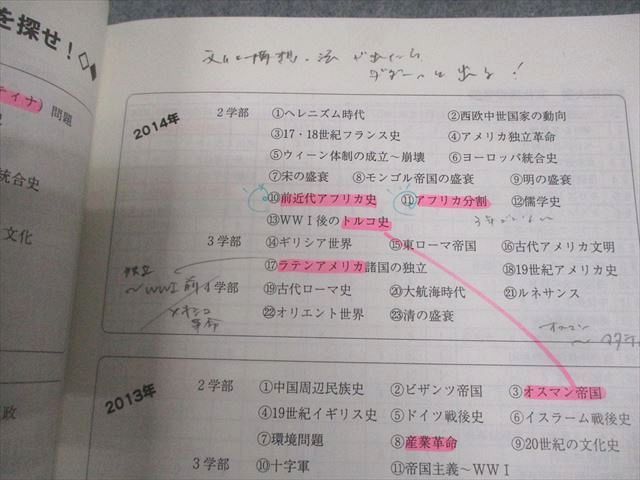 を探せ！
ティナ) 問題
統合史
文化
政
2014年
2学部 ①ヘレニズム時代 ②西欧中世国家の動向
③17・18世紀フランス史 ④アメリカ独立革命
⑤ウィーン体制の成立～崩壊 ⑥ヨーロッパ統合史
⑦宋の盛衰 ⑧モンゴル帝国の盛衰 ⑨明の盛衰
⑩前近代アフリカ史 ⑪アフリカ分割 ⑫儒学史
⑬WWⅠ後のトルコ史
3学部 ⑭ギリシア世界 ⑮東ローマ帝国 ⑯古代アメリカ文明
⑰ラテンアメリカ諸国の独立 ⑱19世紀アメリカ史
独立
～WWⅠ前
メキシコ
革命
4学部 ⑲古代ローマ史 ⑳大航海時代 ㉑ルネサンス
㉒オリエント世界 ㉓清の盛衰
オスマン
2013年
2学部 ①中国周辺民族史 ②ビザンツ帝国 ③オスマン帝国
④19世紀イギリス史 ⑤ドイツ戦後史 ⑥イスラーム戦後史
⑦環境問題 ⑧産業革命 ⑨20世紀の文化史
3学部 ⑩十字軍 ⑪帝国主義～WWⅠ